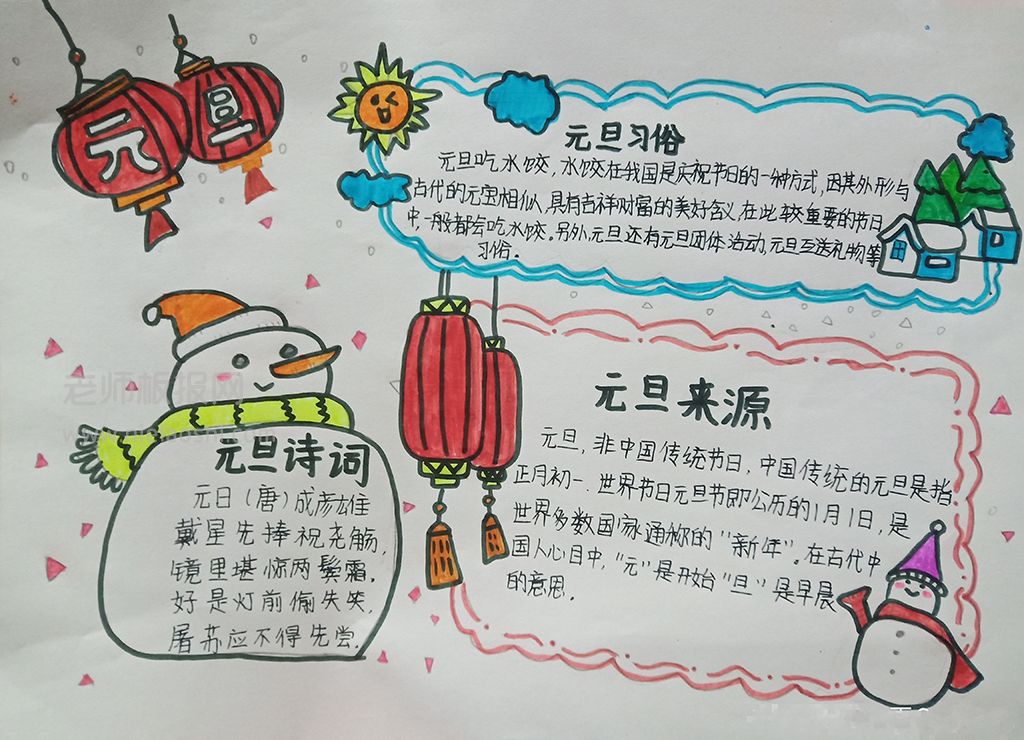 元旦
元旦习俗
元旦吃水饺，水饺在我国是庆祝节日的一种方式，因其外形与
古代的元宝相似，具有吉祥财富的美好含义，在此较重要的节日
中，一般都会吃水饺。另外，元旦还有元旦团体活动，元旦互送礼物等
习俗。
元旦来源
元旦，非中国传统节日，中国传统的元旦是指
正月初一。世界节日元旦节即公历的1月1日，是
世界多数国家通称的“新年”。在古代中
国人心目中，“元”是开始“旦”是早晨
的意思。
元旦诗词
元日（唐）成彦雄
戴星先捧祝尧觞，
镜里堪惊两鬓霜。
好是灯前偷失笑，
屠苏应不得先尝。
老师板报网